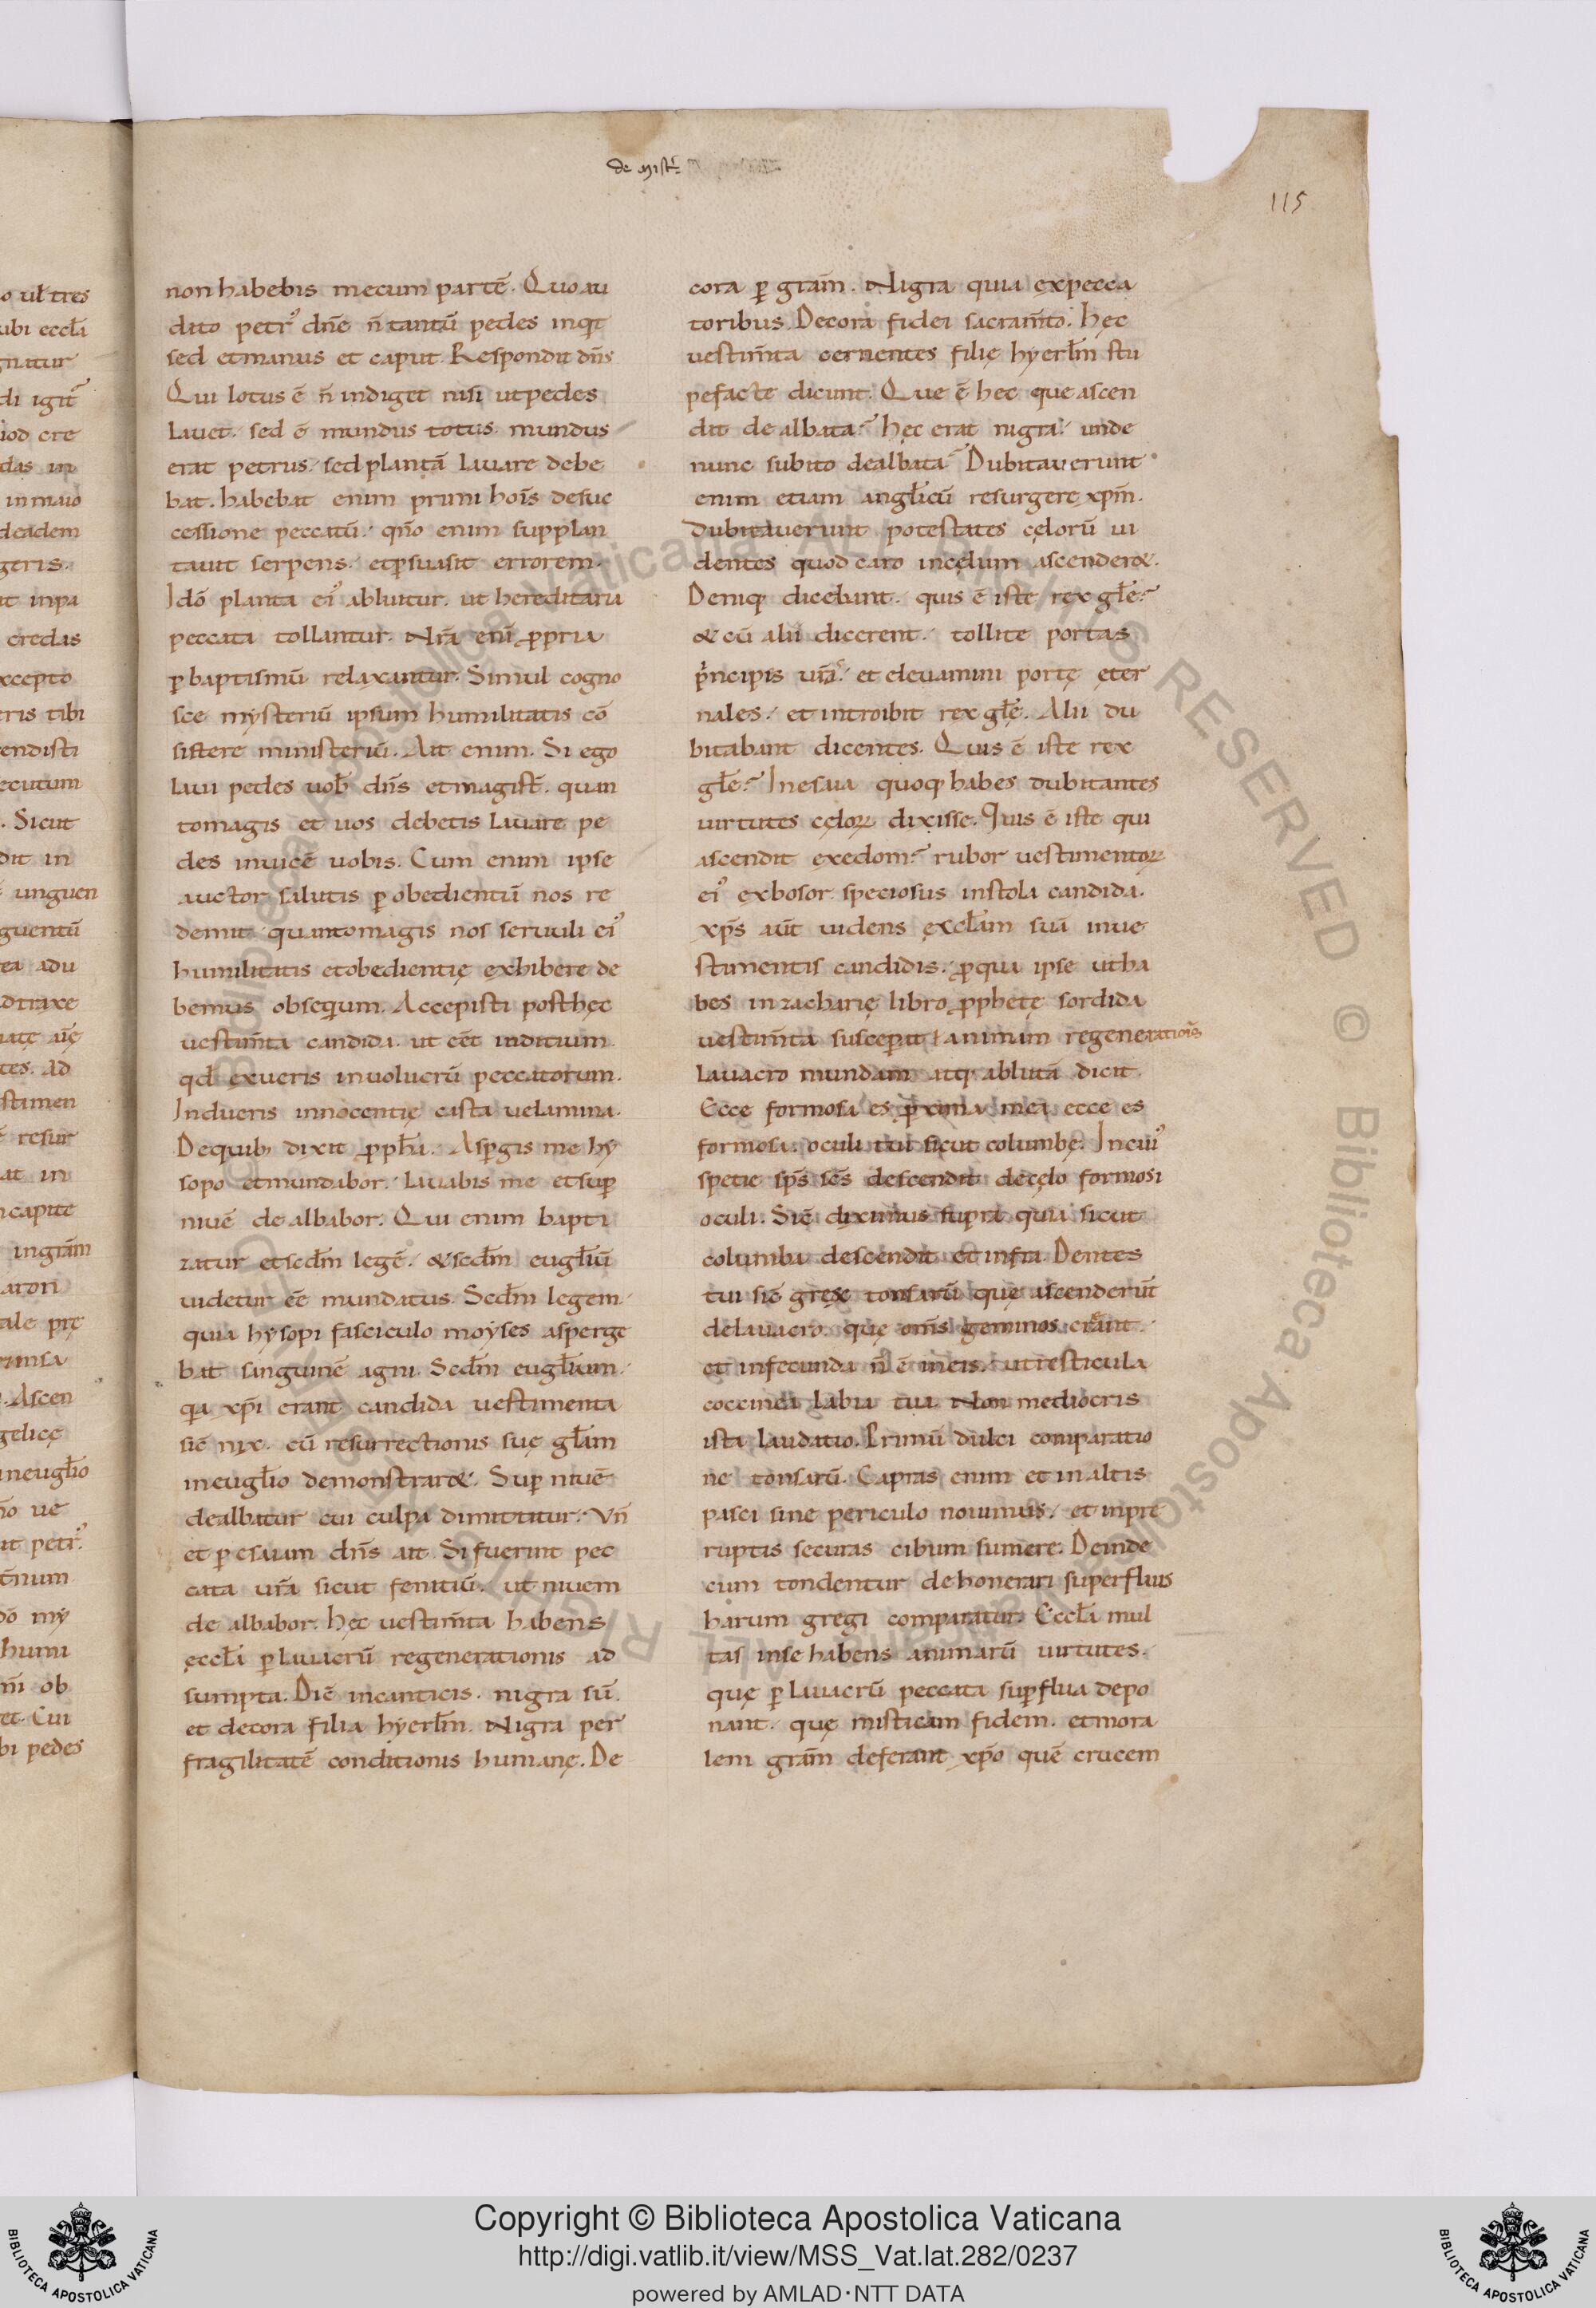 de mist̄
115
non habebis mecum partē. Quo au
dito petrꝰ dn̄e n̄ tantū pedes inqͥt
sed et manus et caput. Respondit dn̄s
Qui lotus ē n̄ indiget nisi ut pedes
lauet. sed ē mundus totus. mundus
erat petrus. sed plantā lauare debe
bat. habebat enim primi hoīs de suc
cessione peccatū. qn̄o enim supplan
tauit serpens. et ꝑsuasit errorem.
Idō planta eiꝰ abluitur. ut hereditaria
peccata tollantur. Nr̄a enī ꝓpria
ꝑ baptismū relaxantur. Simul cogno
sce mysteriū ipsum humilitatis cō
sistere ministeriū. Ait enim. Si ego
laui pedes uob̄ dn̄s et magist̄. quan
to magis et uos debetis lauare pe
des inuicē uobis. Cum enim ipse
auctor salutis ꝑ obedientiā nos re
demit. quanto magis nos seruuli eiꝰ
humilitatis et obedientię exhibere de
bemus obseqͥum. Accepisti post hęc
uestim̄ta candida. ut eēt inditium
qd̄ exueris inuolucrū peccatorum.
Indueris innocentię casta uelamina.
De quib; dixit ꝓph̄a. Asꝑgis me hy
sopo et mundabor. lauabis me et suꝑ
niuē de albabor. Qui enim bapti
zatur et sed̄m legē. & sed̄m eugl̄iū
uidetur eē mundatus. Sed̄m legem.
quia hysopi fasciculo moyses asperge
bat sanguinē agni. Sed̄m eugl̄ium.
qͥa xp̄i erant candida uestimenta
sic̄ nix. cū resurrectionis suę gl̄am
in eugl̄io demonstrar&. Suꝑ niuē
dealbatur cui culpa dimittitur. Vn̄
et ꝑ esaiam dn̄s ait. Si fuerint pec
cata ur̄a sicut feniciū. ut niuem
de albabor. hęc uestim̄ta habens
ęccl̄a ꝑ lauacrū regenerationis ad
sumpta. Dic̄ in canticis. nigra sū
et decora filia hyerl̄m. Nigra per
fragilitatē conditionis humanę. De
cora ꝑ grām. Nigra quia ex pecca
toribus. Decora fidei sacram̄to. hęc
uestim̄ta cernentes filię hyerl̄m stu
pefacte dicunt. Que ē hec que ascen
dit de albata? hęc erat nigra. unde
nunc subito dealbata? Dubitauerunt
enim etiam angl̄icū resurgere xp̄m.
dubitauerunt potestates cęlorū ui
dentes quod caro in cęlum ascender&.
Deniq; dicebant. quis ē iste rex gl̄e?
& cū alii dicerent. tollite portas
pͥncipis ur̄i. et eleuamini portę ęter
nales. et introibit rex gl̄ę. Alii du
bitabant dicentes. Quis ē iste rex
gl̄e? In esaia quoq; habes dubitantes
uirtutes cęloꝝ dixisse. Quis ē iste qui
ascendit ex edom? rubor uestimentoꝝ
eiꝰ ex bosor speciosus in stola candida.
xp̄s aūt uidens ęccl̄am suā in ue
stimentis candidis. ꝓ qua ipse ut ha
bes in zacharię libro ꝓphetę sordida
uestim̄ta susceꝑat ł animam regeneratiois̄
lauacro mundam atq; ablutā dicit.
Ecce formosa es ꝓxima mea ecce es
formosa. oculi tui sicut columbę. In cuiꝰ
spetie sp̄s sc̄s descendit de cęlo formosi
oculi. Sic̄ diximus supra quia sicut
columba descendit et infra. Dentes
tui sic̄ grex tonsarū quę ascenderūt
de lauacro. quę oms̄ geminos creant.
et infecunda n̄ ē in eis. ut resticula
coccinea labia tua. Non mediocris
ista laudatio. Primū dulci comparatio
ne tonsarū. Capras enim et in altis
pasci sine periculo nouimus. et in pre
ruptis securas cibum sumere. Deinde
cum tondentur dehonerari superfluis
harum gregi comparatur Eccl̄a mul
tas in se habens animarū uirtutes.
quę ꝑ lauacrū peccata suꝑflua depo
nant. quę misticam fidem. et mora
lem grām deferant xp̄o quē crucem
Copyright © Biblioteca Apostolica Vaticana
http://digi.vatlib.it/view/MSS_Vat.lat.282/0237
powered by AMLAD·NTT DATA